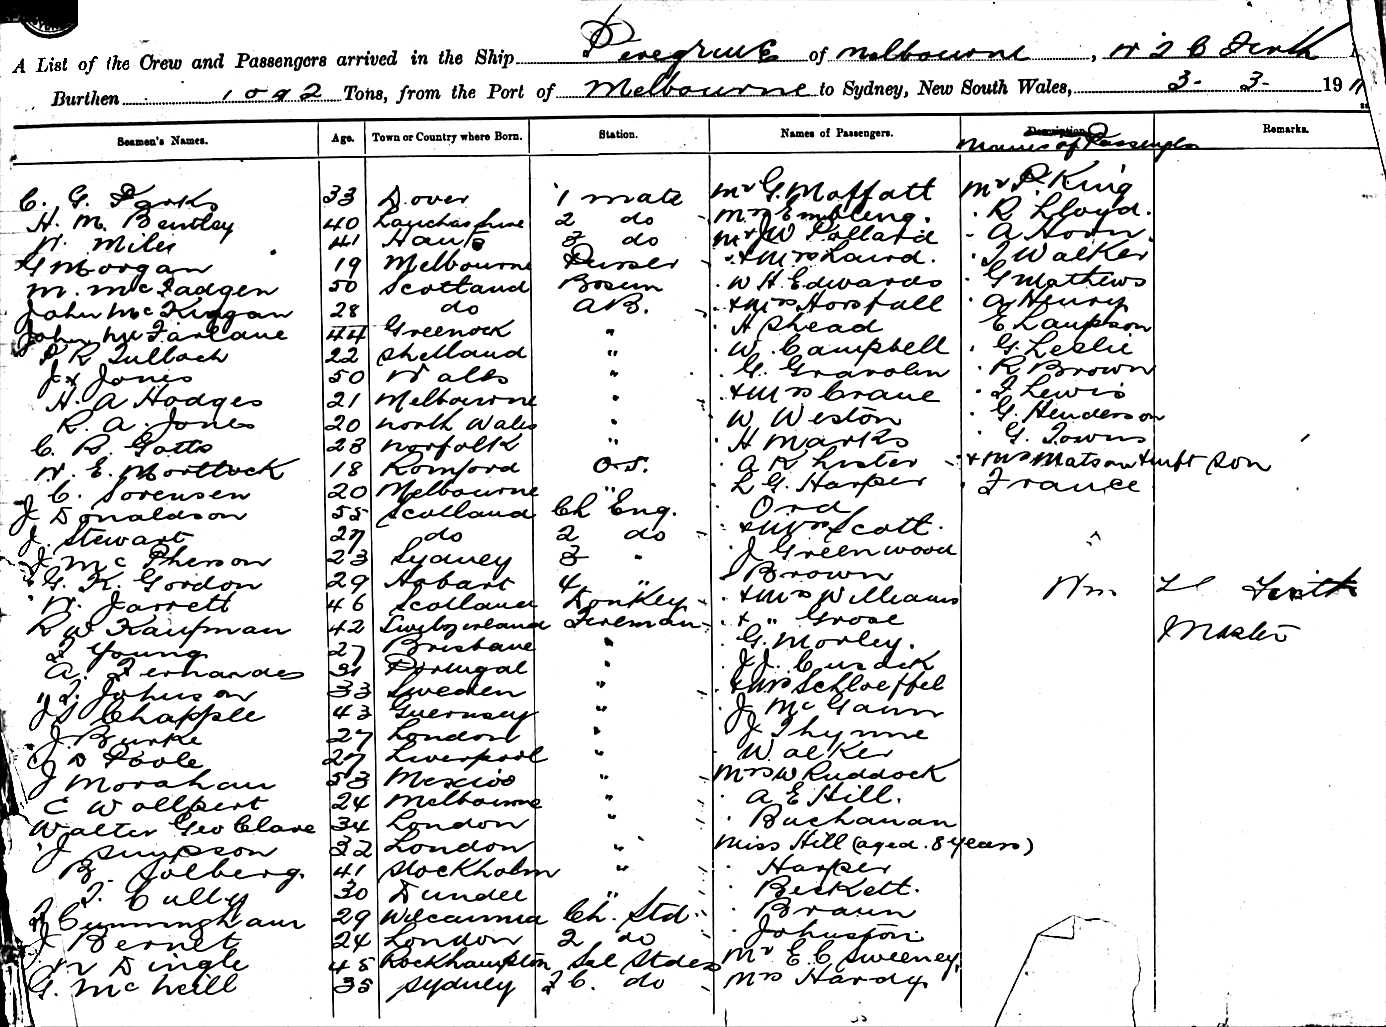 A List of the Crew and Passengers arrived in the Ship Peregrine of Melbourne, W J C Firth
Burthen 1092 Tons, from the Port of Melbourne to Sydney, New South Wales, 3- 3- 19
Seamen's Names. Age. Town or Country where Born. Station. Names of Passengers. Description Remarks.
Names of Passengers
C. G. Parks 33 Dover 1 mate Mr G. Moffatt Mr P. King
H. M. Bentley 40 2 do Mrs Embling. R Lloyd.
W. Miles 41 Hants 3 do W Pollard A Horn.
G Morgan 19 Melbourne Purser + Mrs Laird. J Walker
M. McFadgen 50 Scotland Bosun W H. Edwards G Mathews
John McKinnan 28 do AB. + Mrs Horsfall A Henry
John McFarlane 44 Greenock " H Shead E Laupson
P R Tulloch 22 Shetland " W. Campbell G. Leslie
J Jones 50 Wales " G. R Brown
H. A Hodges 21 Melbourne " + Mrs Crane J Lewis
R. A. Jones 20 North Wales " W Weston G. Henderson
C. R. Gotts 28 Norfolk " H Marks G. Towns
W. E. Mortlock 18 Romford O.S. A R Lister + Mrs Matson + inft son
J C. Sorensen 20 Melbourne " L G. Harper France
J Donaldson 55 Scotland Ch Eng. Ord
J. Stewart 27 do 2 do + Mrs Scott.
J McPherson 23 Sydney 3 " J Greenwood
G. K. Gordon 29 Hobart 4 " Brown
W. Jarrett 46 Scotland Donkey + Mrs Williams Wm Firth
R W Kaufman 42 Switzerland Fireman + " Grose Master
J Young 27 Brisbane " G. Morley.
A. Fernandes 31 Portugal " J. J. Cusack
J. Johnson 33 Sweden " + Mrs Schloeffel
J S Chapple 43 Guernsey " J McGann
J Burke 27 London " J Thynne
D Poole 27 Liverpool " Walker
J Morahan 53 Mexico " Mrs W Ruddock
C Wollpert 24 Melbourne " A E Hill.
Walter Geo Clare 34 London Buchanan
J Simpson 32 London " Miss Hill (aged 8 years)
B. Solberg. 41 Stockholm " Harper
J. Cully 30 Dundee " Beckett.
J Cunningham 29 Wilcannia Ch. Std. Braun
J Bernet 24 London 2 do Johnston
W Dingle 45 Rockhampton Sal Stdes Mr E. C Sweeney.
G. McNeill 35 Sydney F C. do Mrs Hardy